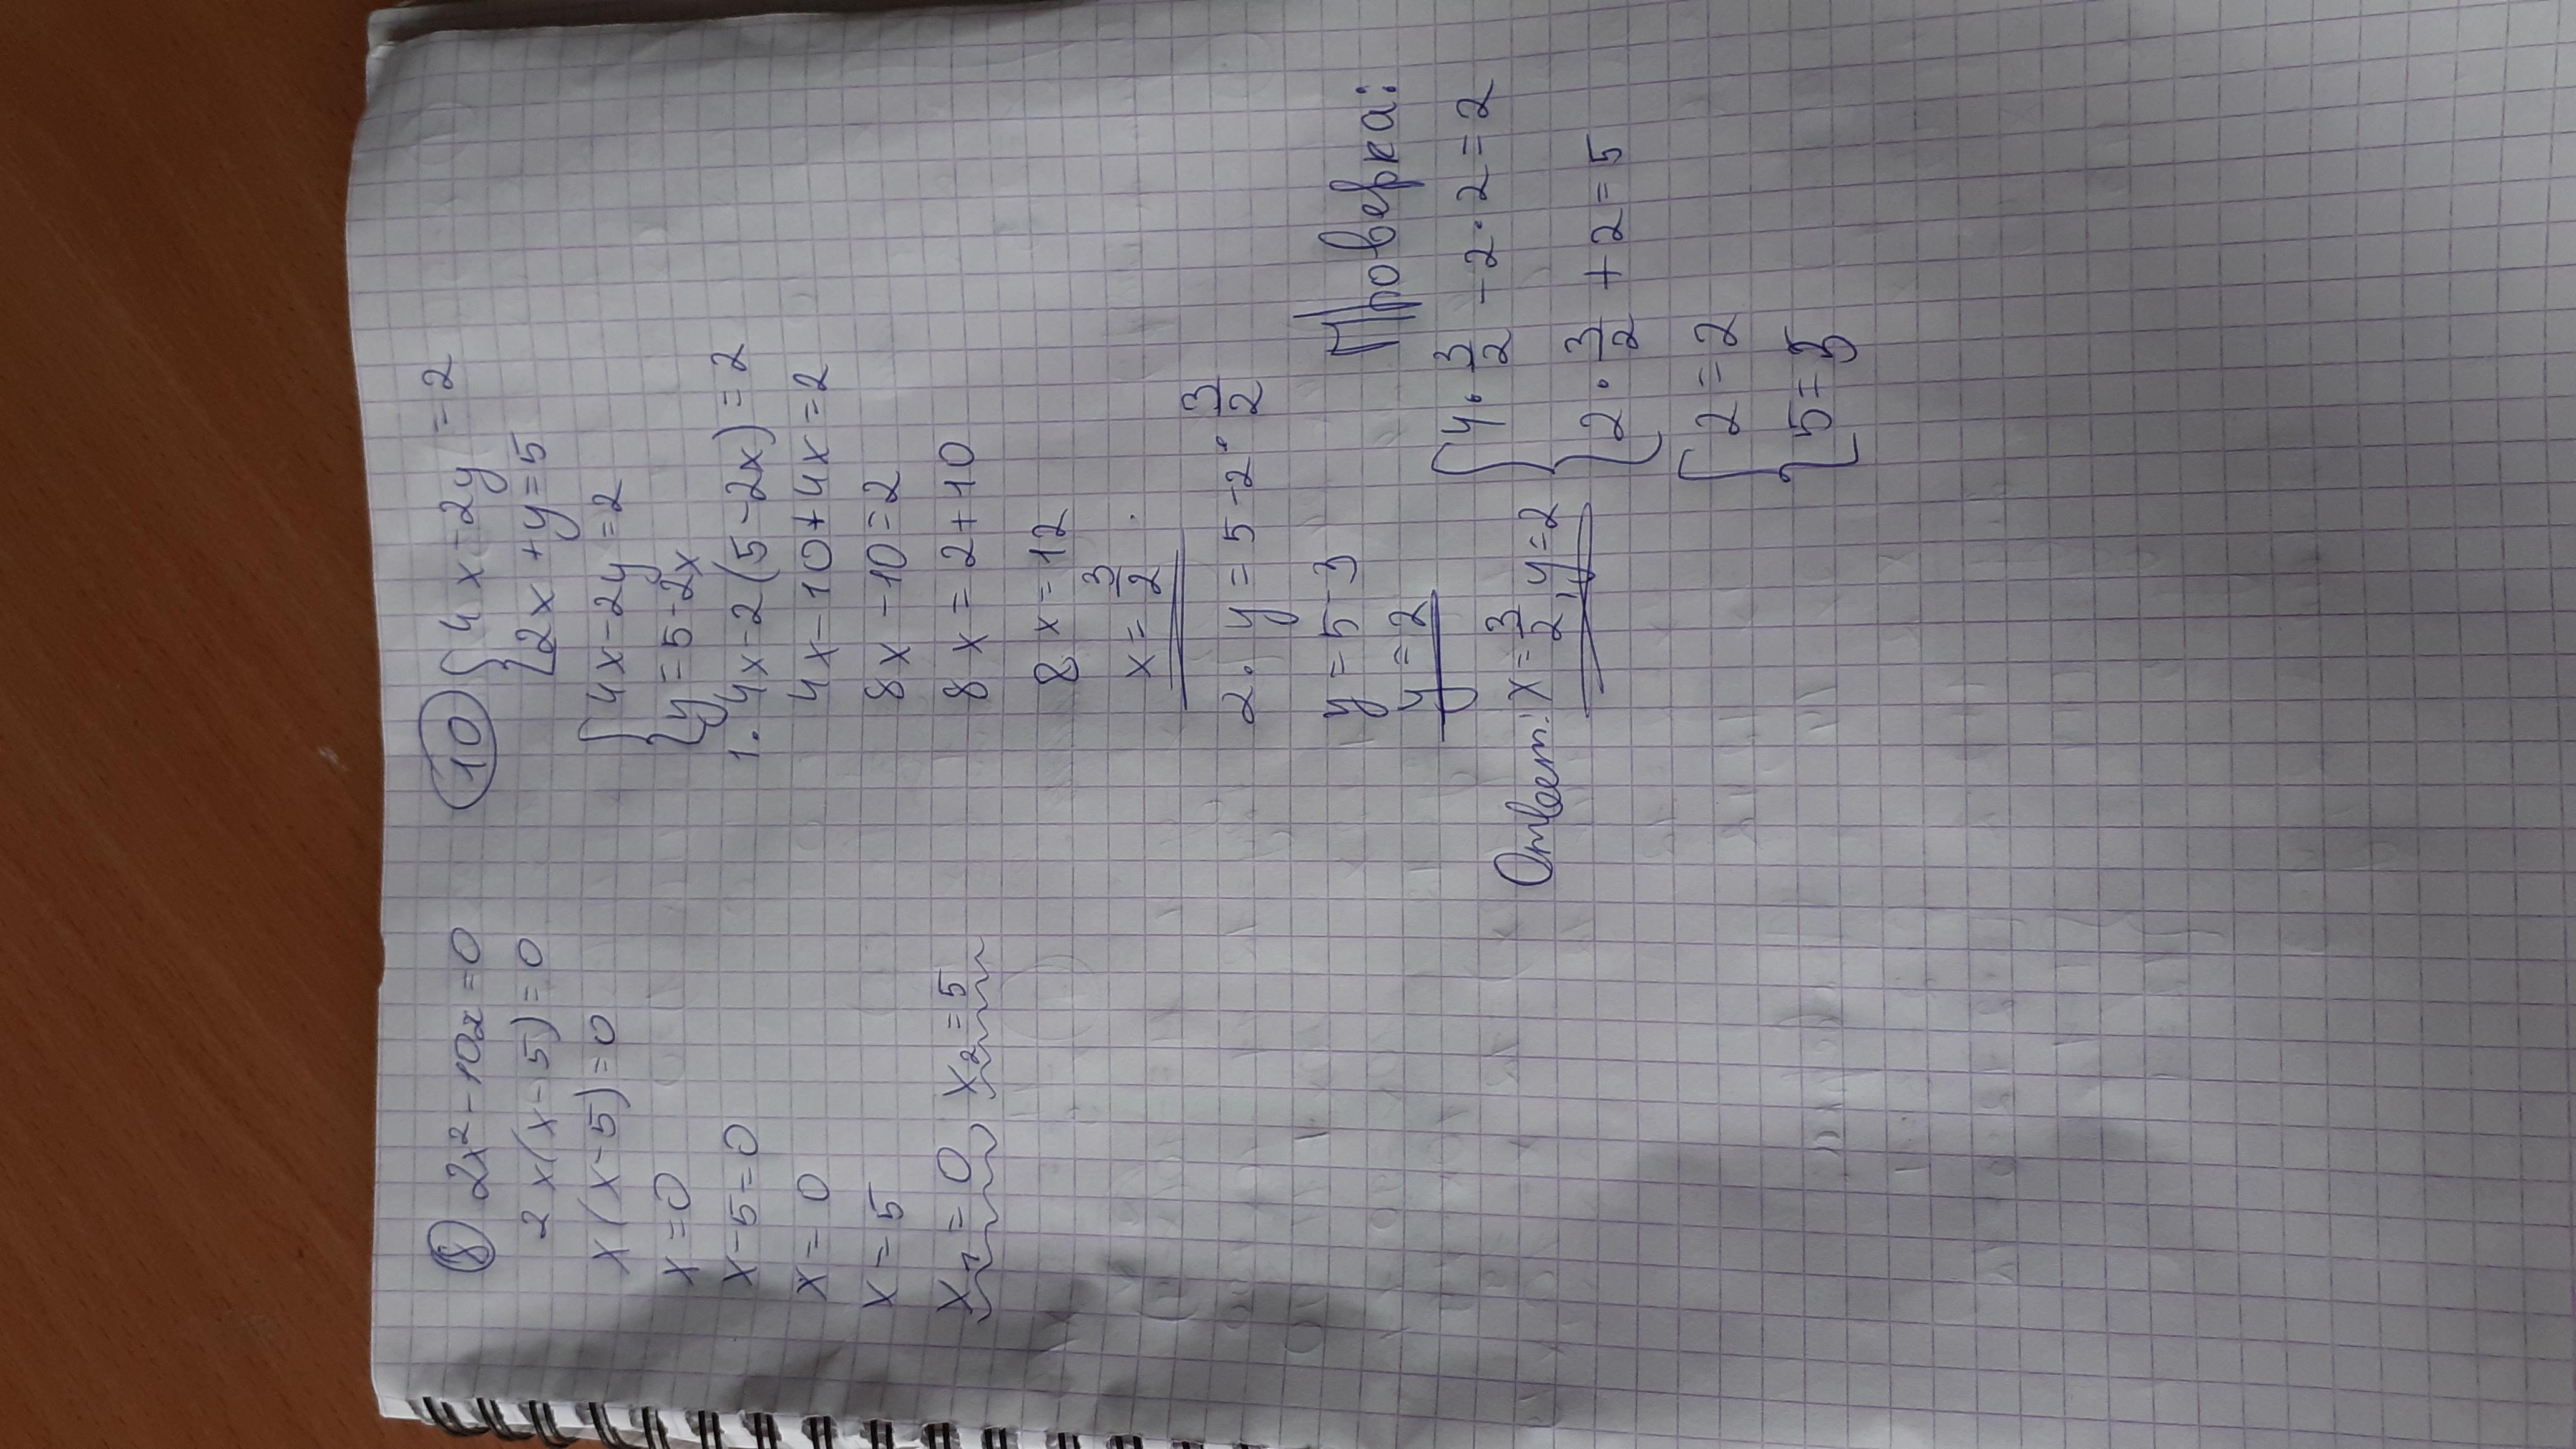 8 2x² - 10x = 0
2x(x-5) = 0
x(x-5) = 0
x = 0
x-5=0
x = 0
x = 5
x₁ = 0 x₂ = 5
10 { 4x - 2y = 2
2x + y = 5
{ 4x - 2y = 2
y = 5-2x
1. 4x - 2(5-2x) = 2
4x - 10 + 4x = 2
8x - 10 = 2
8x = 2 + 10
8x = 12
x = 3/2
2. y = 5 - 2 · 3/2
y = 5 - 3
y = 2
Ответ: x = 3/2, y = 2
Проверка:
{ 4 · 3/2 - 2 · 2 = 2
2 · 3/2 + 2 = 5
{ 2 = 2
5 = 5